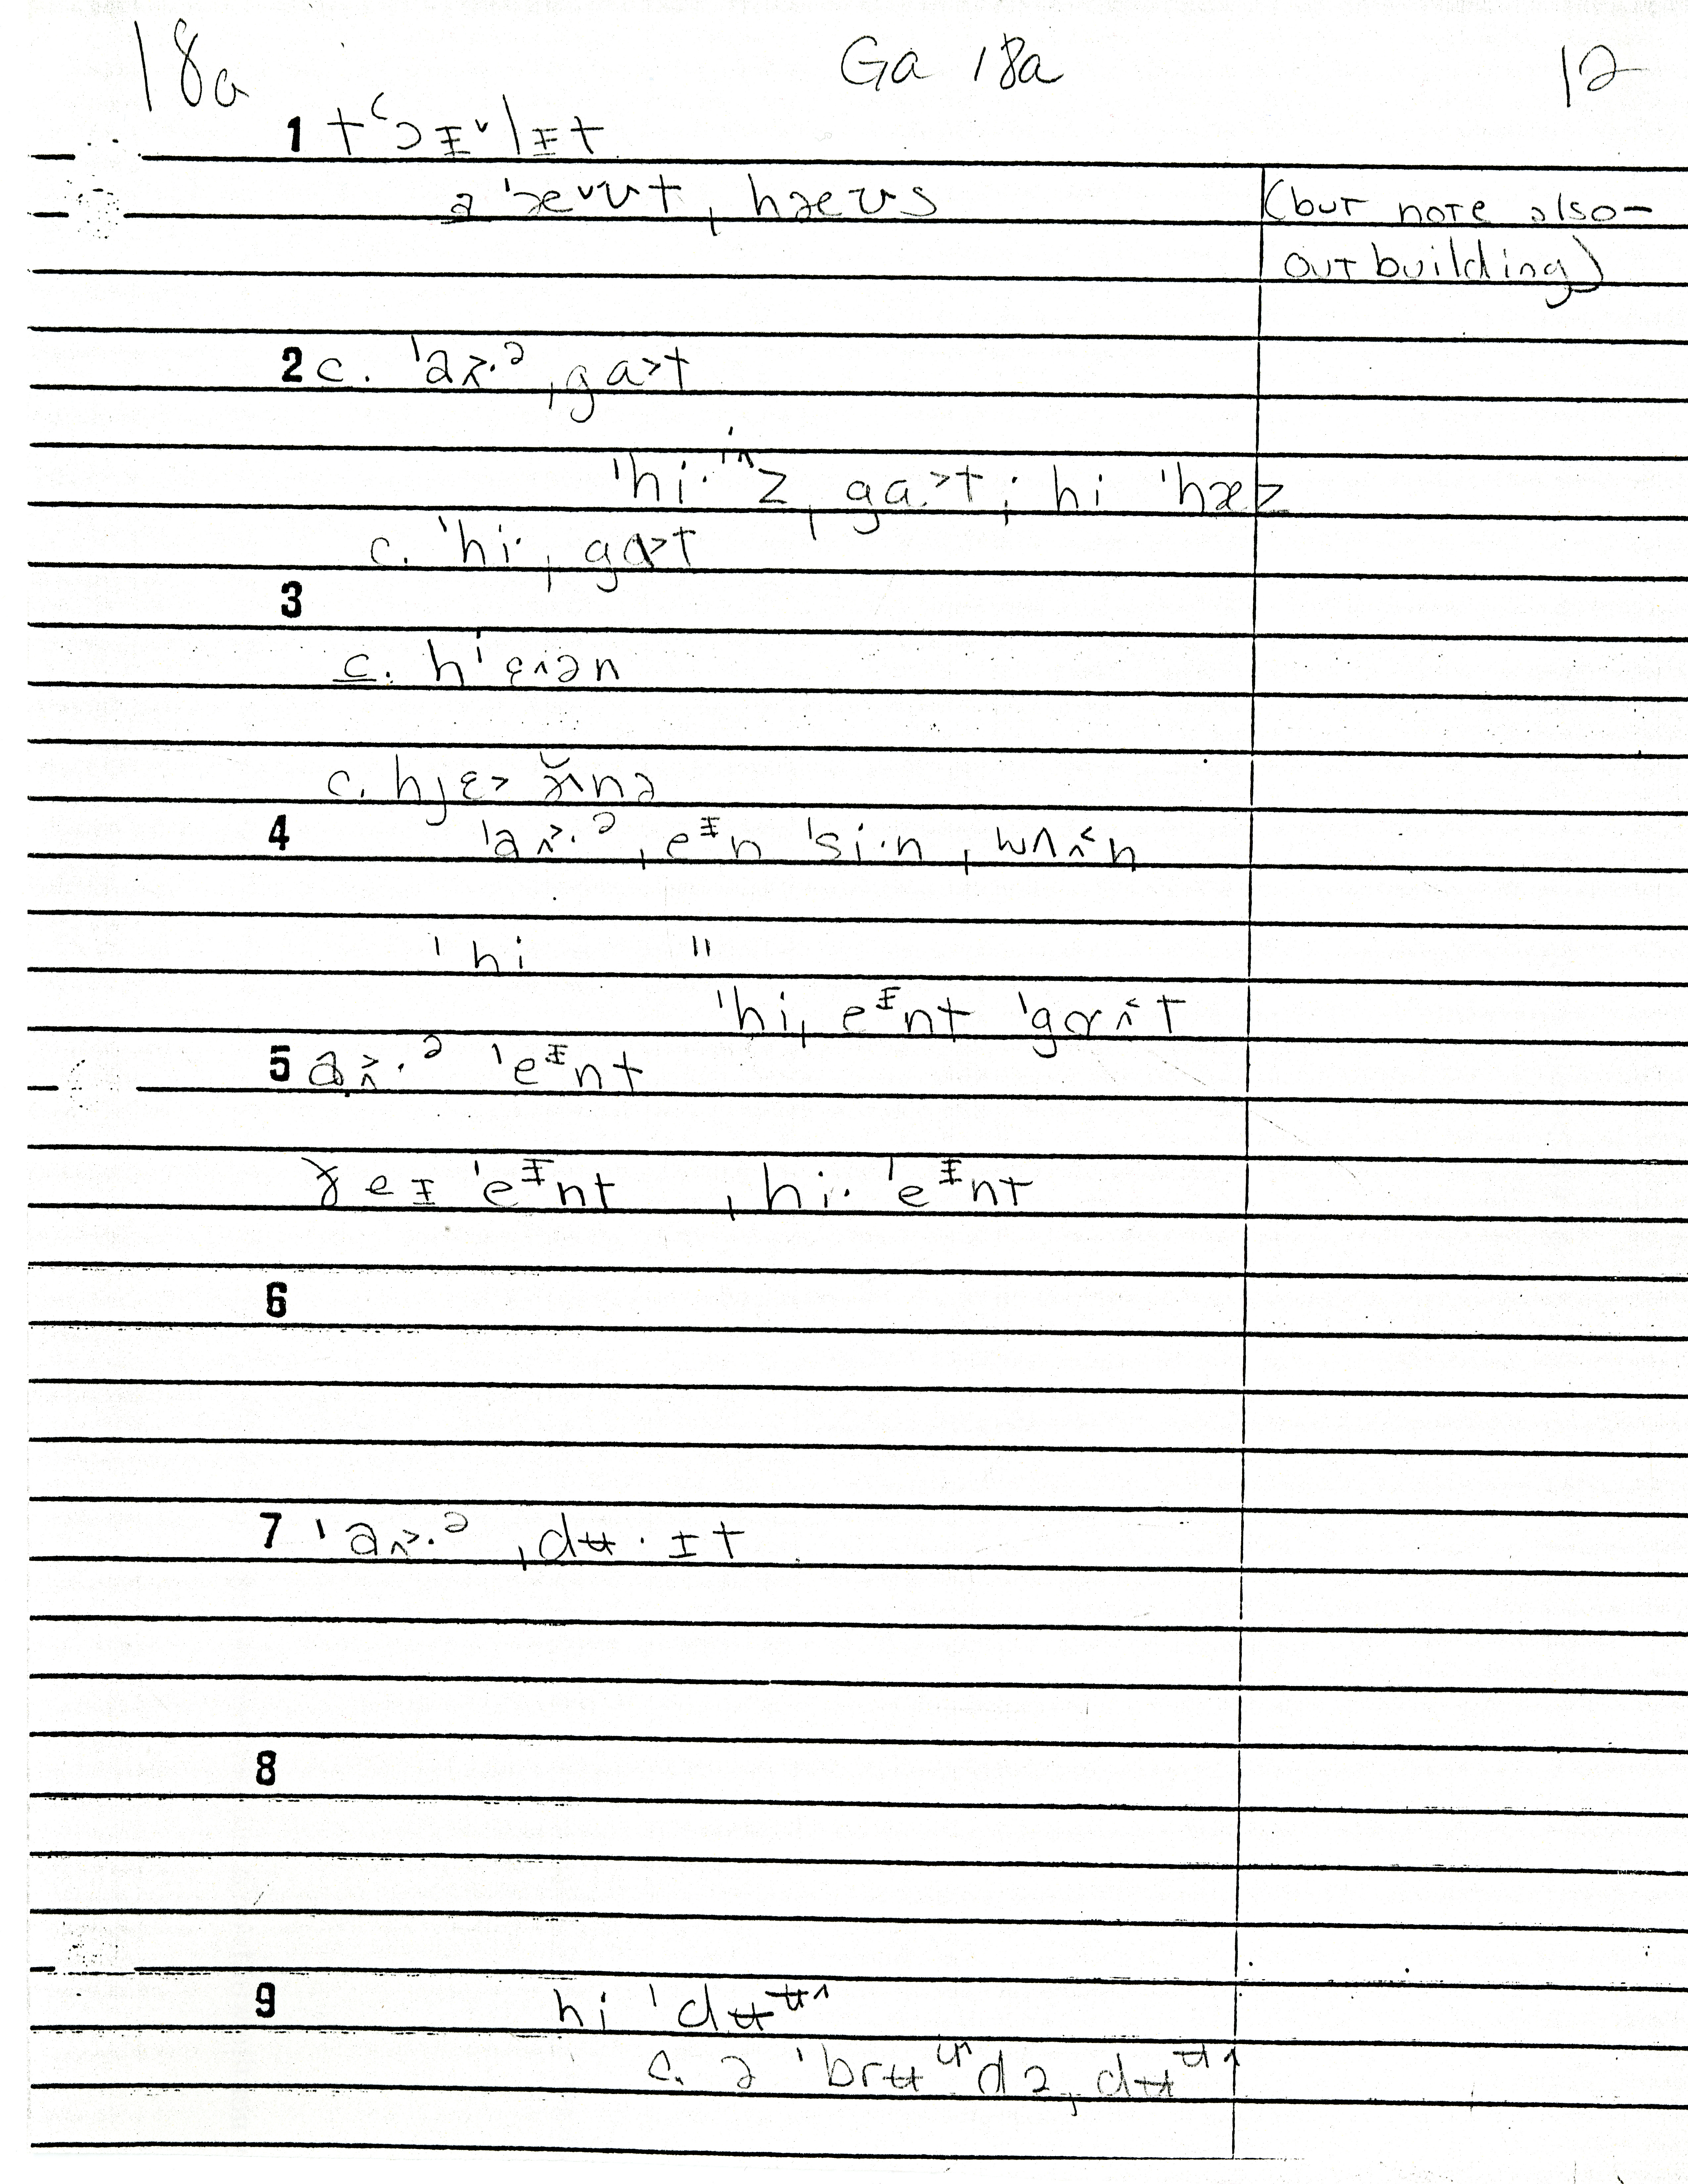 18a Ga 18a 12
1 tʻɔɪ˅lɪt
ə ˈæ˅ʊt ˌhæʊs (but note also-
outbuilding)
2 c. ˈaʌ˃·ᵊ ˌga˃t
ˈhi· z ˌga˃t; hi ˈhæz
c. ˈhi· ˌgɑ˃t
3
c. hˈɛ˄ən
c. hjɛ˃ nə
4 ˈaʌ˃·ᵊ ˌeᶦn ˈsi·n ˌwʌ˄˂n
ˈhi "
ˈhi ˌeᶦnt ˈgɑ˄˂t
5 aʌ˃·ᵊ ˈeᶦnt
ðeɪ ˈeᶦnt ˌhi· ˈeᶦnt
6
7 ˈaʌ˃·ᵊ ˌdʉ·ɪt
8
9 hi ˈdʉᶶ˄
c. ə ˈbrʉ də ˌdʉᶶ˄